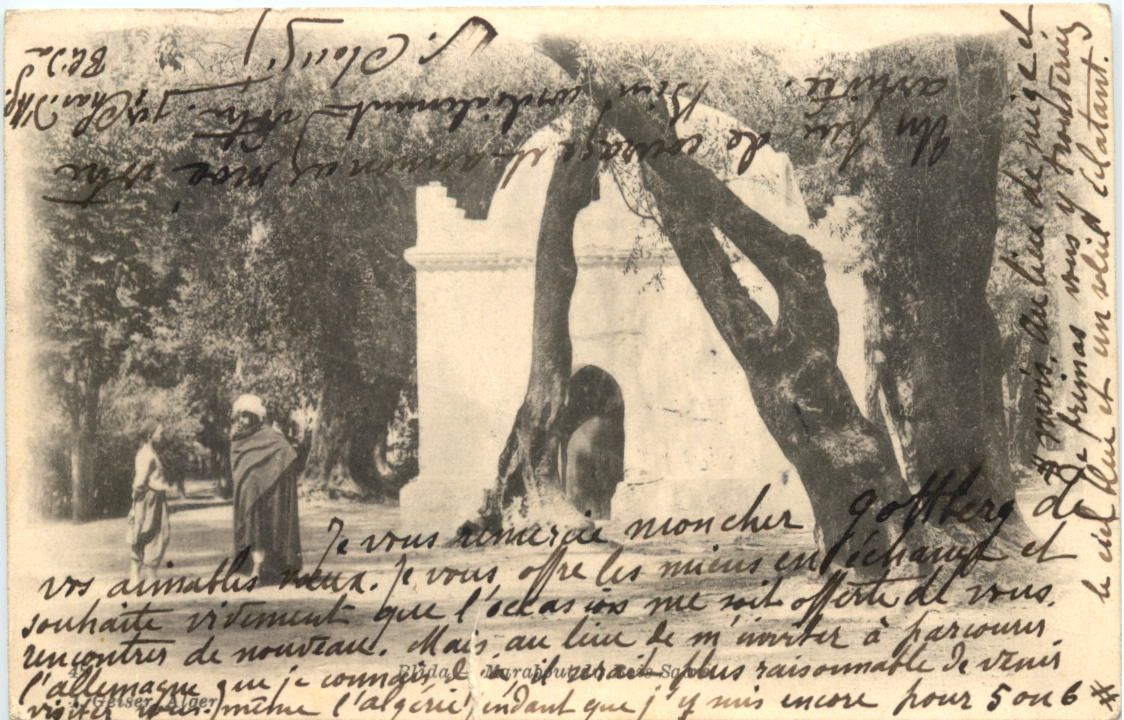 Je vous remercie mon cher Gottberg de
vos aimables vœux. Je vous offre les miens en échange et
souhaite vivement que l'occasion me soit offerte de vous
rencontrer de nouveau. Mais, au lieu de m'inviter à parcourir
l'allemagne que je connais, il serait plus raisonnable de venir
visiter vous même l'algérie pendant que j'y suis encore pour 5 ou 6 *
* mois. Au lieu de neige et
de vous y trouveriez
le ciel bleu et un soleil éclatant.
Un peu de courage et annoncez moi votre
arrivée.
Bien cordialement votre
Blida
Blida - Marabout du Bois Sacré
Geiser, Alger